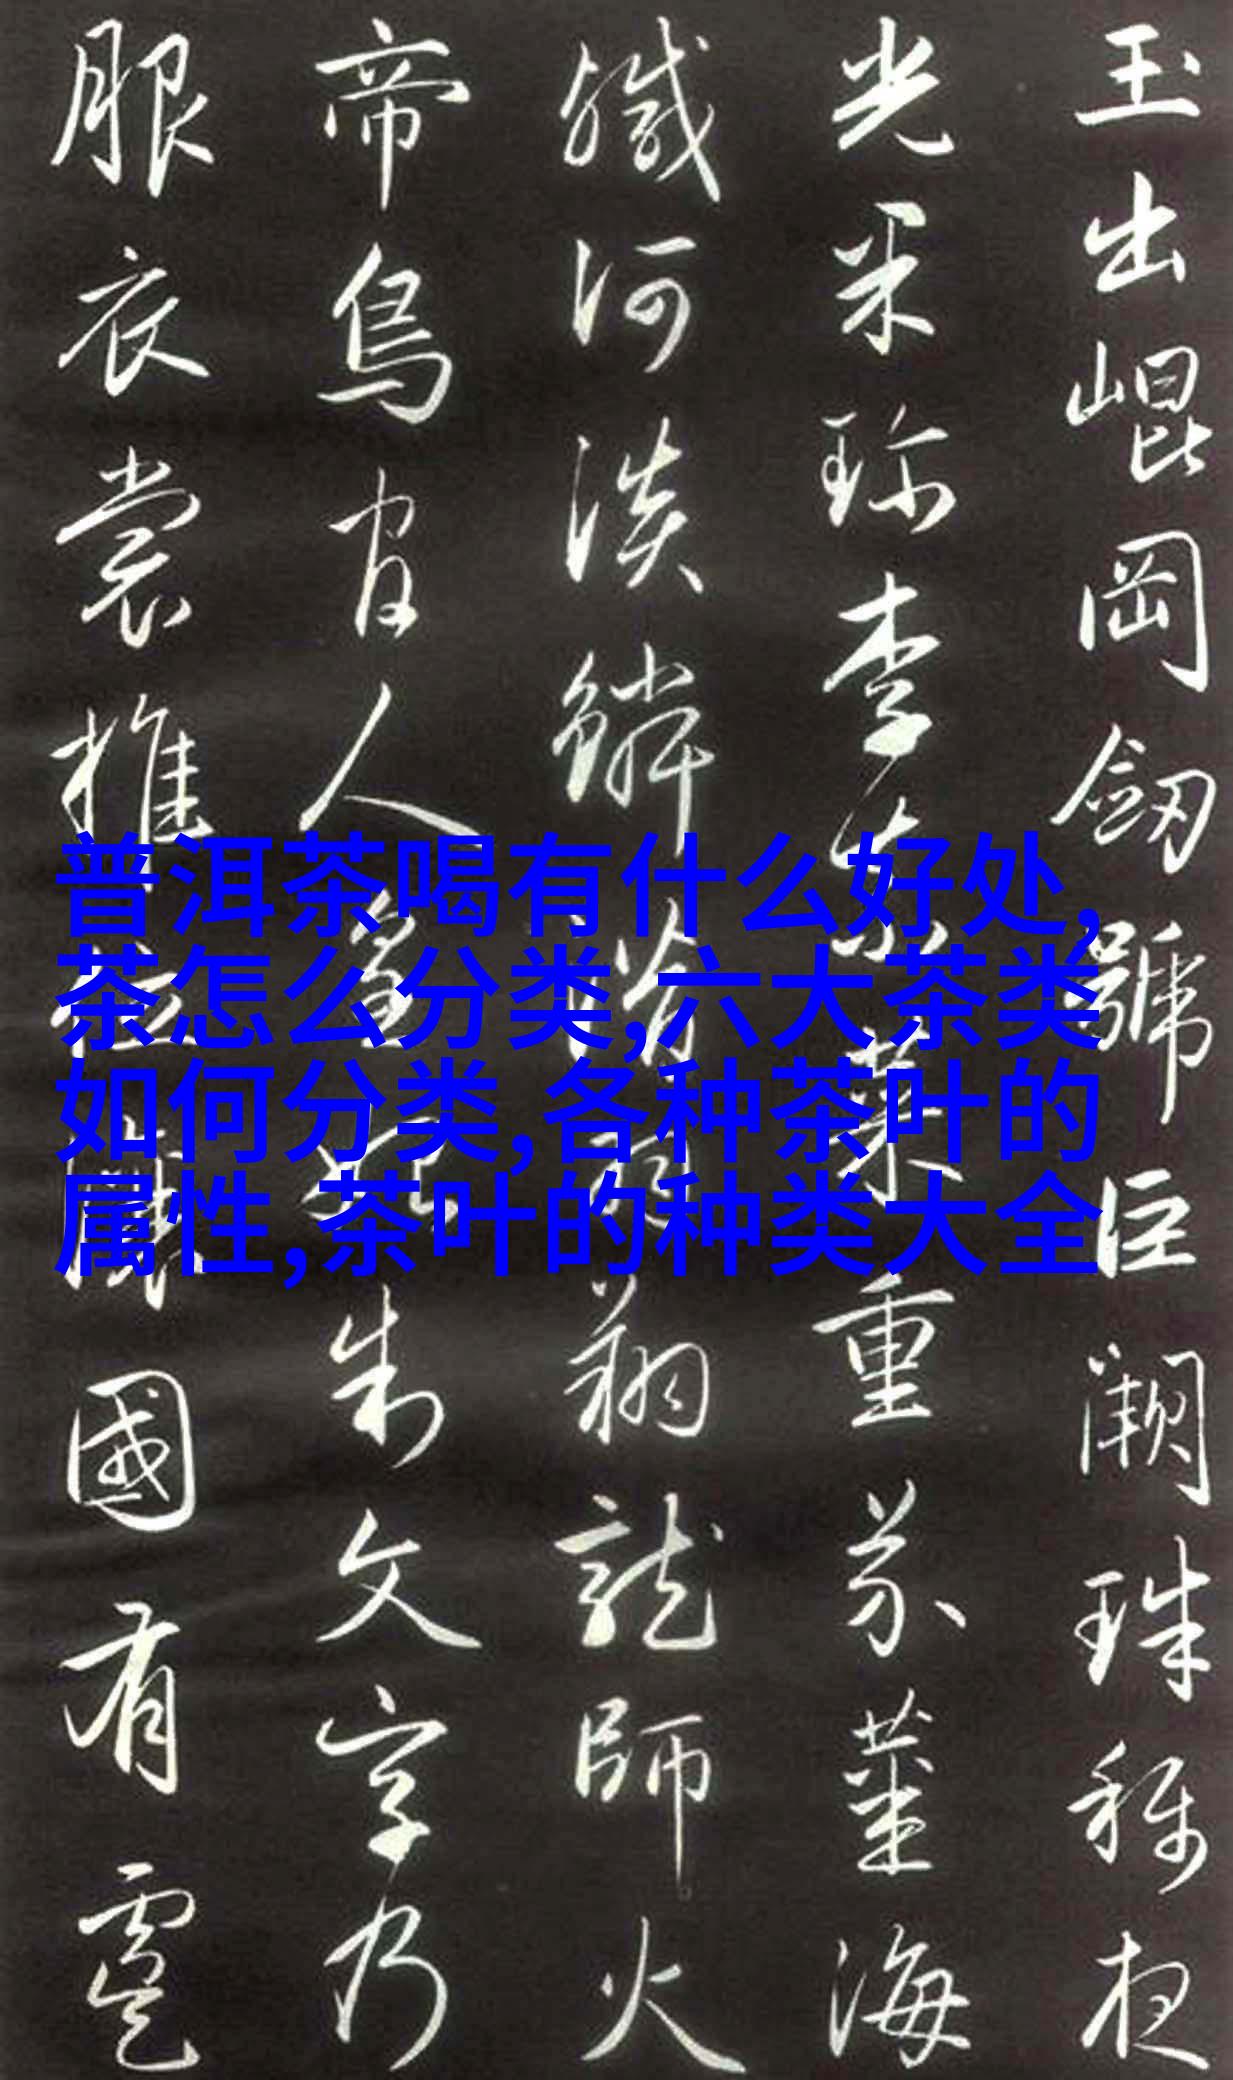 玉出崐岡劒號巨闕珠稱夜
光果珎李柰菜重芥薑海
鹹河淡鱗潛羽翔龍師火
帝鳥官人皇始制文字乃
服衣裳推位讓國有虞
普洱茶喝有什么好处,
茶怎么分类,六大茶类
如何分类,各种茶叶的
属性,茶叶的种类大全